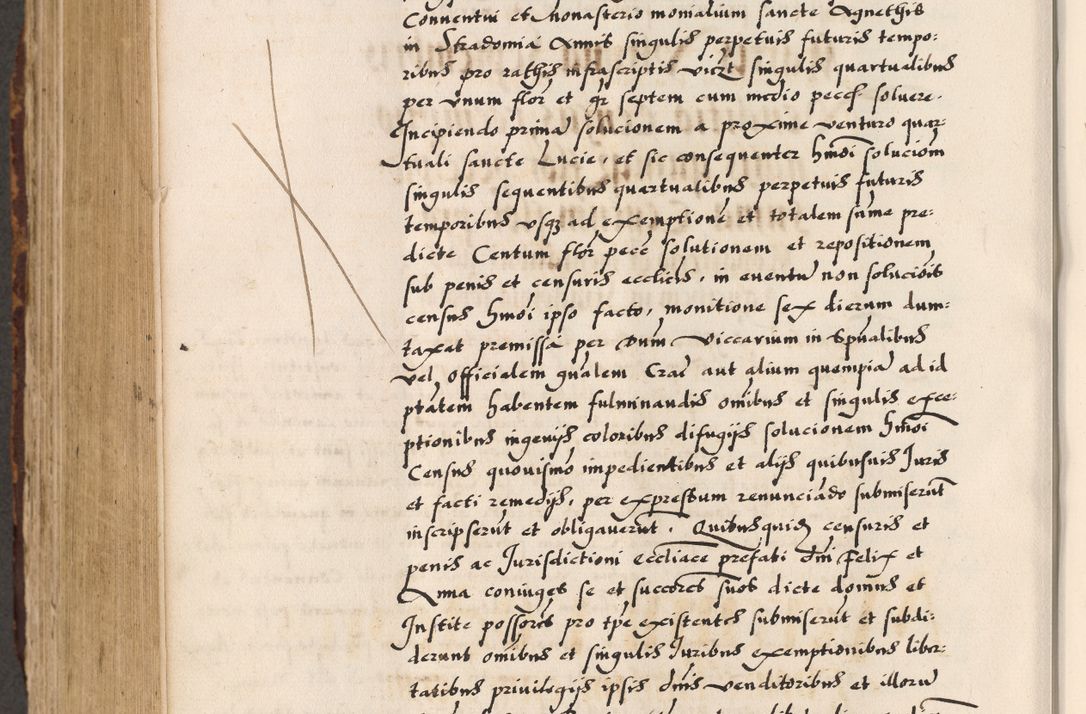 Conventui et Monasterio monialium sancte Agnethis
in Stradomia Annis singulis perpetuis futuris tempo:
ribus pro rathis infrascriptis vičzt singulis quartualibus
per vnum flor et gr septem cum medio pecc solvere.
Incipiendo prima solucionem a proxime venturo quar:
tuali sancte Lucie, et sic consequenter hmōi solucionem
singulis sequentibus quartualibus perpetuis futuris
temporibus vsq ad exemptione et totalem sume pre:
dicte Centum flor pecc solutionem et repositionem
sub penis et censuris ecclicis, in eventu non solucionis
census hmōi ipso facto, monitione sex dierum dum:
taxat premissa per Dnum Viccarium in Spualibus
vel officialem gnalem Crac aut alium quempia ad id
ptatem habentem fulminandis omibus et singulis exce:
ptionibus ingenijs coloribus difugijs solucionem hmōi
Census quovismo impedientibus et alijs quibusuis Juris
et facti remedijs, per expressum renunciado submiserūt
inscripserūt et obligaverūt. Quibusquid censuris et
penis ac Jurisdictioni eccliace prefati dni Felix et
Anna coniuges se et succores suos dicte domus et
Institē possores pro tpe existentes submiserūt et subdi:
derunt omibus et singulis Juribus exemptionibus liber:
tatibus privilegijs ipsis dnis venditoribus et illoru